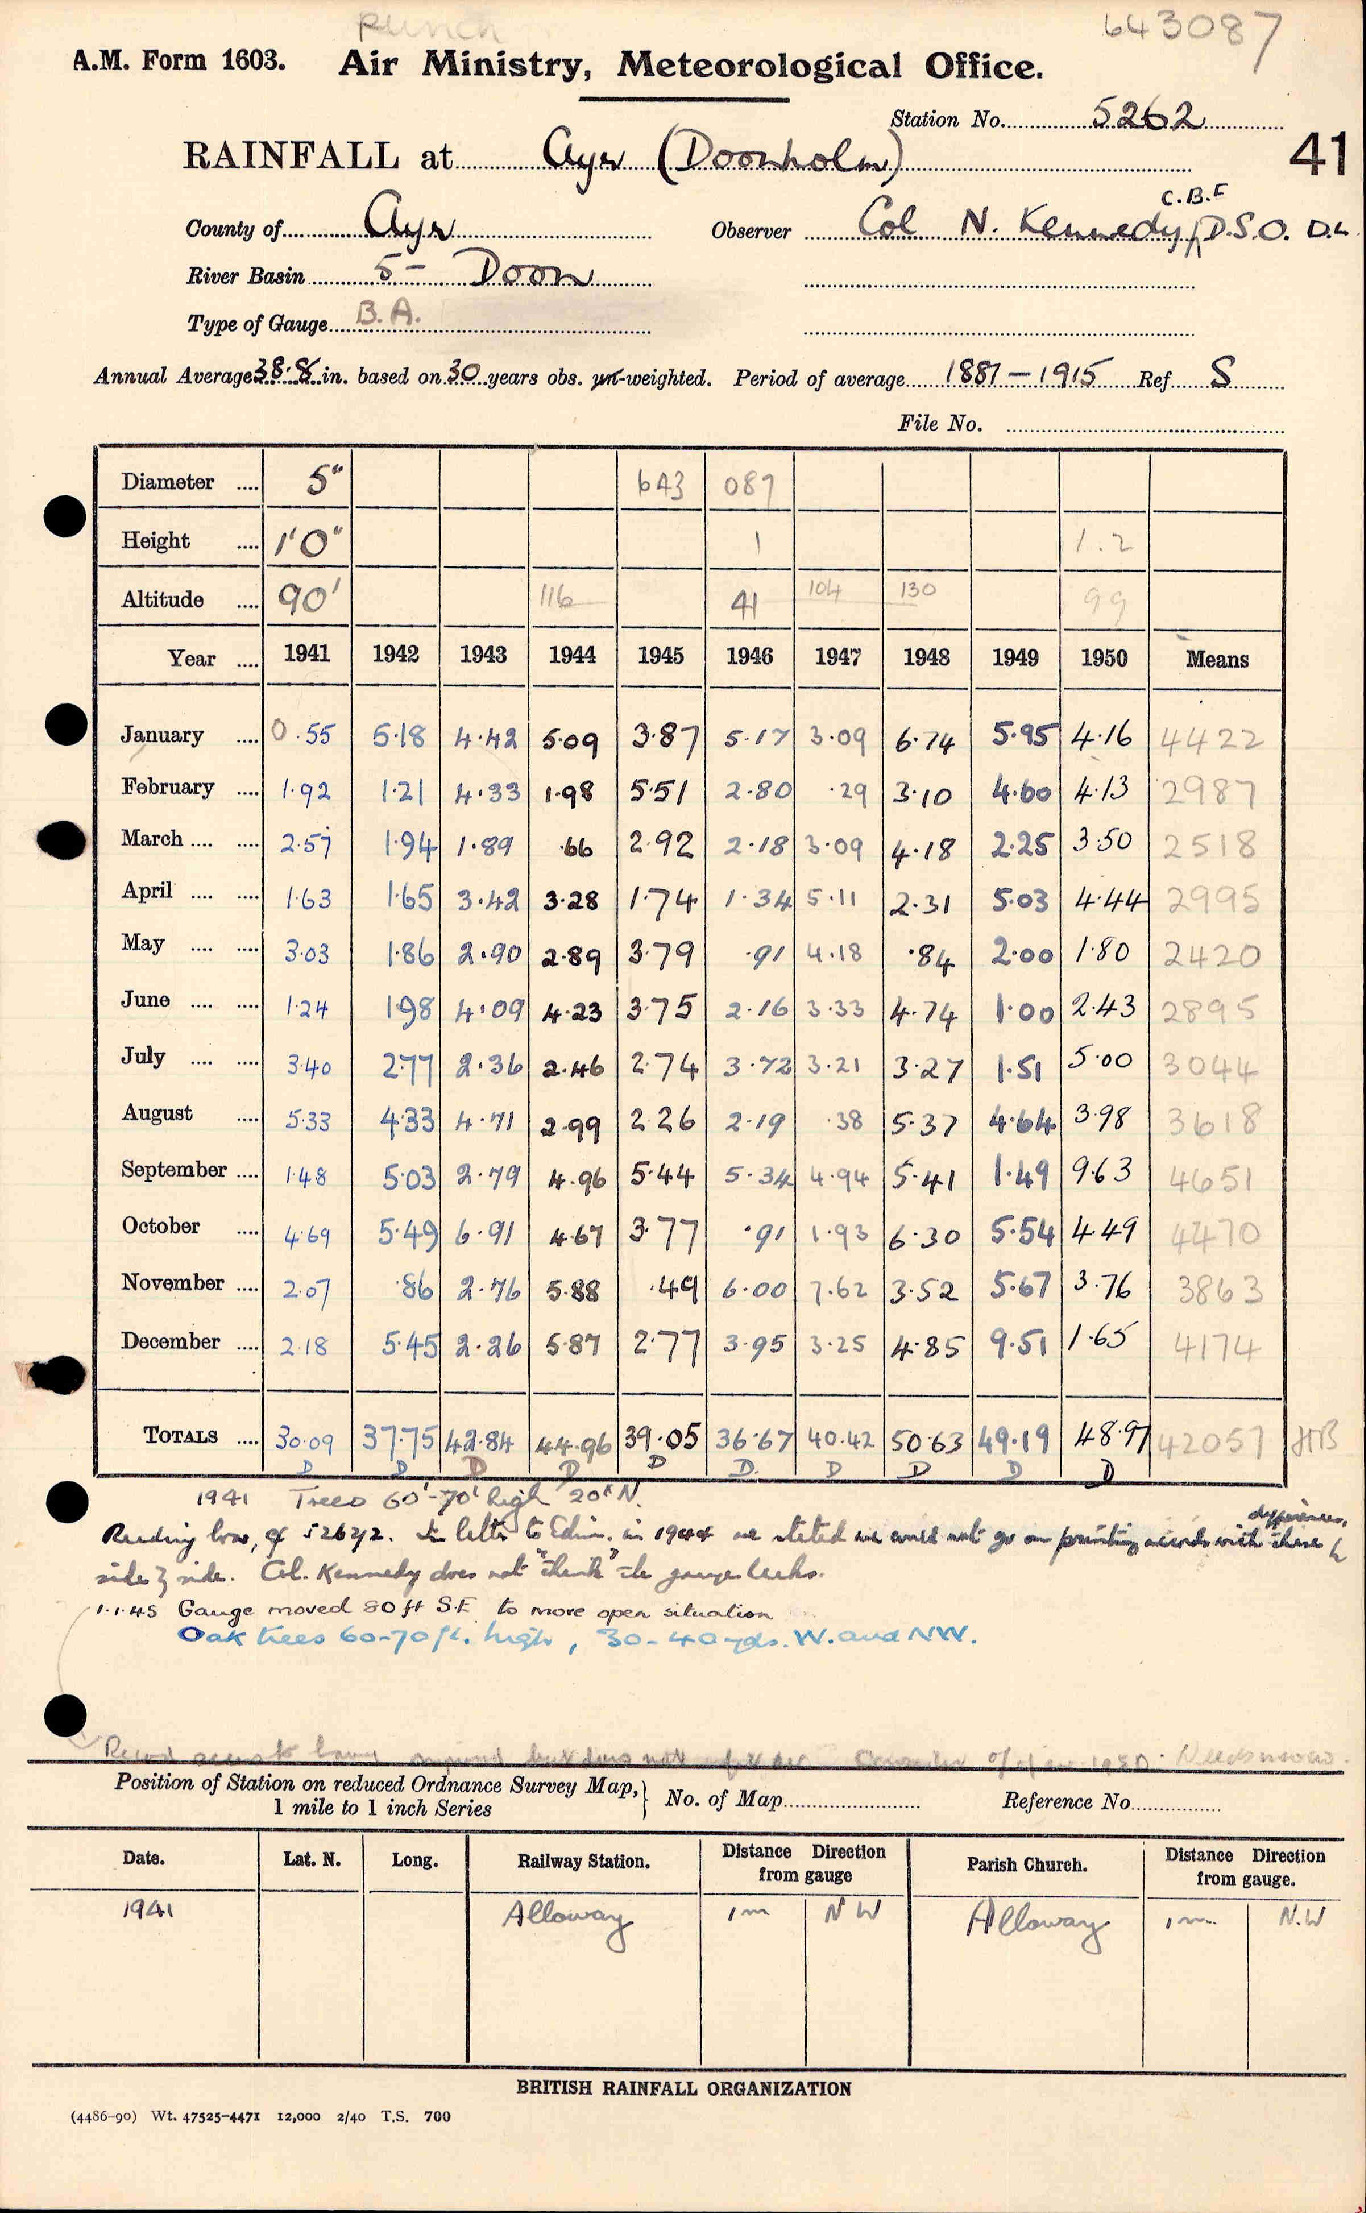 Punch
643087
A.M. Form 1603. Air Ministry, Meteorological Office.
Station No. 5262
RAINFALL at Ayr (Doonholm)
41
C.B.E
County of Ayr Observer Col N. Kennedy, D.S.O. D.L.
River Basin 5- Doon
Type of Gauge B.A.
Annual Average 38.8 in. based on 30 years obs. un-weighted. Period of average 1881-1915 Ref S
File No.
Diameter .... 5" 643 087
Height .... 1'0" 1 1.2
Altitude .... 90' 116 41 104 130 99
Year .... 1941 1942 1943 1944 1945 1946 1947 1948 1949 1950 Means
January .... 0.55 5.18 4.42 5.09 3.87 5.17 3.09 6.74 5.95 4.16 4422
February .... 1.92 1.21 4.33 1.98 5.51 2.80 .29 3.10 4.60 4.13 2987
March .... .... 2.57 1.94 1.89 .66 2.92 2.18 3.09 4.18 2.25 3.50 2518
April .... .... 1.63 1.65 3.42 3.28 1.74 1.34 5.11 2.31 5.03 4.44 2995
May .... .... 3.03 1.86 2.90 2.89 3.79 .91 4.18 .84 2.00 1.80 2420
June .... .... 1.24 1.98 4.09 4.23 3.75 2.16 3.33 4.74 1.00 2.43 2895
July .... .... 3.40 2.77 2.36 2.46 2.74 3.72 3.21 3.27 1.51 5.00 3044
August .... 5.33 4.33 4.71 2.99 2.26 2.19 .38 5.37 4.64 3.98 3618
September .... 1.48 5.03 2.79 4.96 5.44 5.34 4.94 5.41 1.49 9.63 4651
October .... 4.69 5.49 6.91 4.67 3.77 .91 1.93 6.30 5.54 4.49 4470
November .... 2.07 .86 2.76 5.88 .49 6.00 7.62 3.52 5.67 3.76 3863
December .... 2.18 5.45 2.26 5.87 2.77 3.95 3.25 4.85 9.51 1.65 4174
TOTALS .... 30.09 37.75 42.84 44.96 39.05 36.67 40.42 50.63 49.19 48.97 42057 HB
D D D D D D D D D D
1941 Trees 60'-70' high 20x N.
Reading low, cf 5262/2. In letter to Edin. in 1944 we stated we could not go on printing records with these differences,
side by side. Col. Kennedy does not "think" the gauge leaks.
1.1.45 Gauge moved 80 ft S.E. to more open situation
Oak trees 60-70 ft. high, 30-40 yds. W. and NW.
Record seems to have improved but does not 1950.
Position of Station on reduced Ordnance Survey Map, 1 mile to 1 inch Series } No. of Map Reference No.
Date. Lat. N. Long. Railway Station. Distance Direction from gauge Parish Church. Distance Direction from gauge.
1941 Alloway 1m NW Alloway 1m N.W
BRITISH RAINFALL ORGANIZATION
(4486-90) Wt. 47525-4471 12,000 2/40 T.S. 700